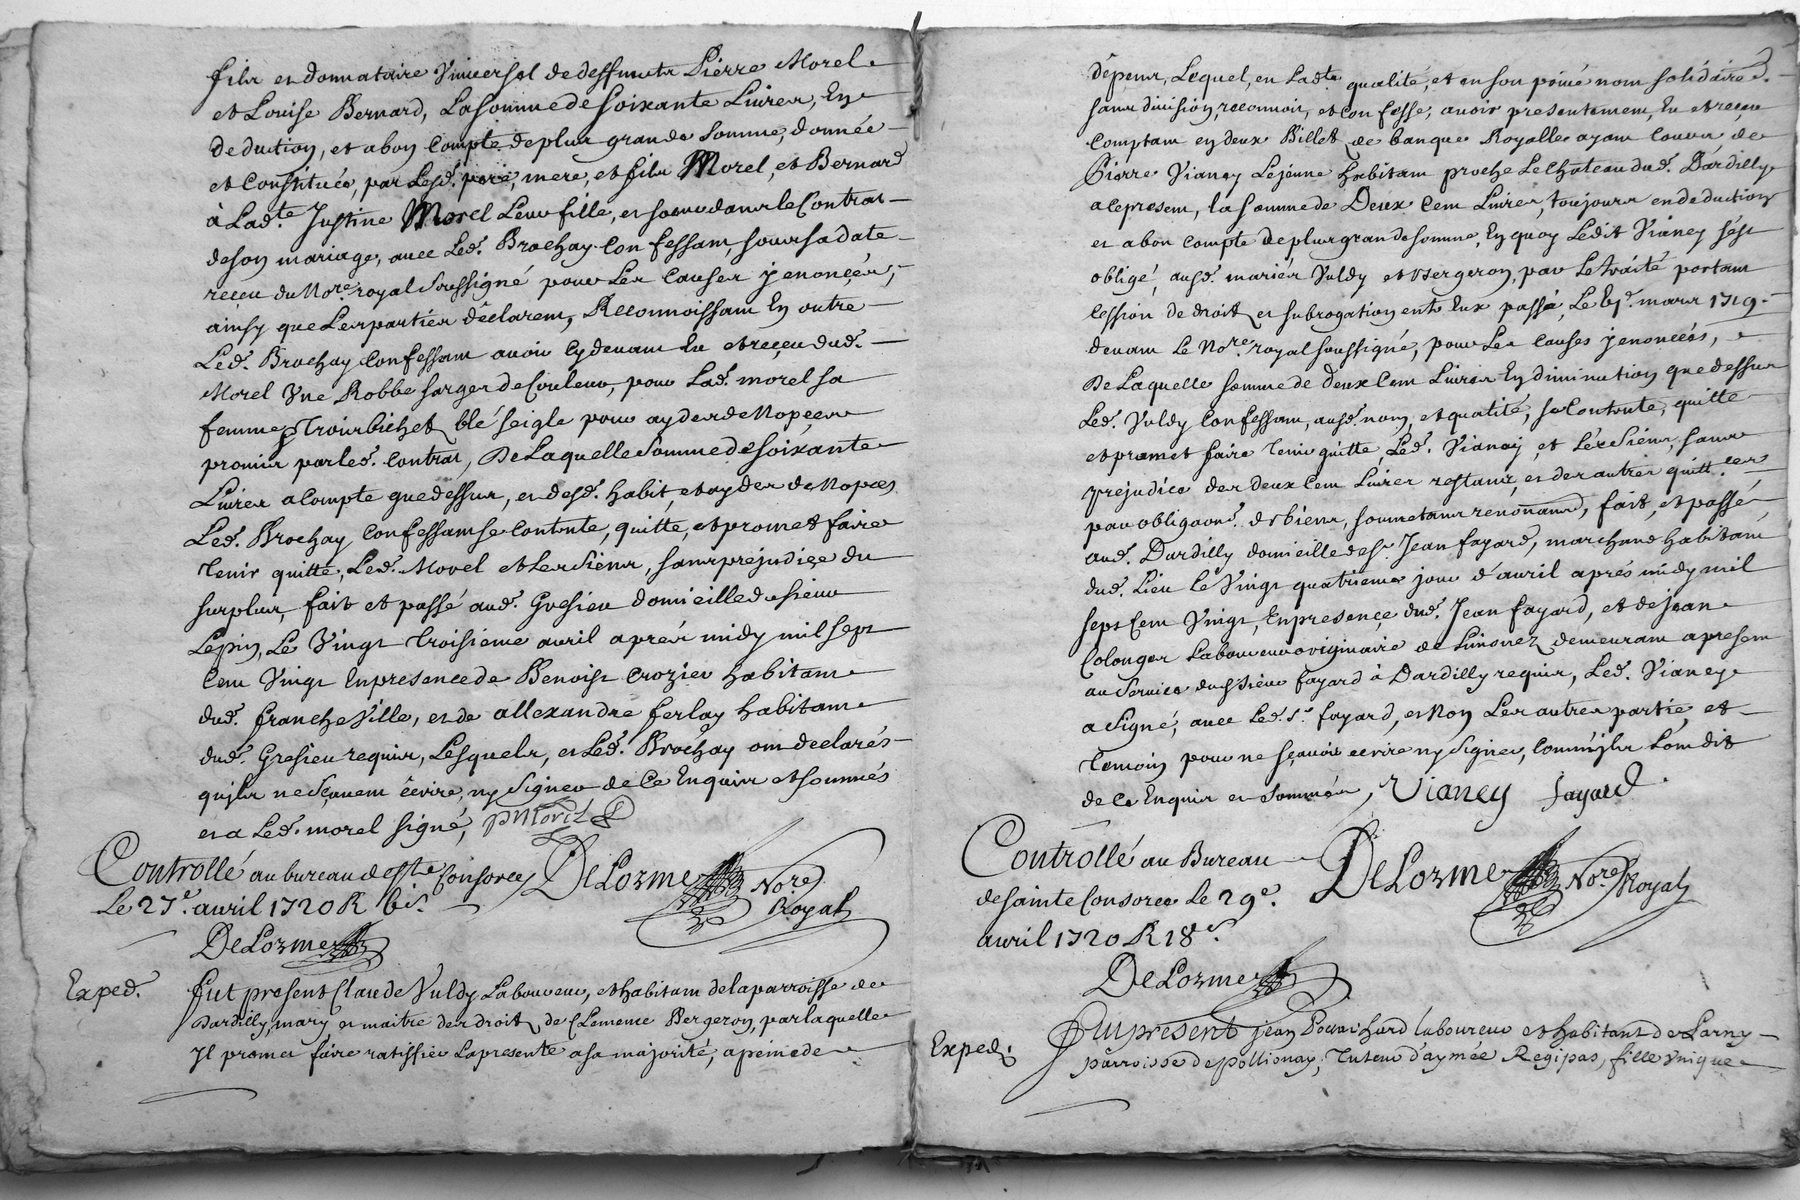 fils et donnataire Vniversel de deffuncts Pierre Morel
et Louise Bernard, La somme de soixante Livres, En
deduction, et a bon Compte de plus grande somme, donnée
et Constituée, par Lesd. pere, mere, et fils Morel, et Bernard
à Lad.te Justine Morel Leur fille, et soeur dans le Contrat
de son mariage, avec Led. Brochay Confessant, sous sa date
reçeu du No.re royal soussigné pour Les Causes y enoncées,
ainsy que Les parties déclarent, Reconnoissant En outre
Led. Brochay Confessant avoir Cy devant Eu et reçeu dud.
Morel Vne Robbe sarge de Couleur, pour Lad. morel sa
femme, Trois bichets blé seigle pour ayder de Nopces
promis par led. Contrat, De Laquelle Somme de soixante
Livres a Compte que dessus, et desd. habit, et ayder de Nopces
Led. Brochay Confessant se Contente, quitte, et promet faire
tenir quitte, Led. Morel et Les siens, sans prejudice du
surplus, fait et passé aud. Gresieu domicille du sieur
Lepin, Le Vingt Troisieme avril aprés midy mil sept
Cent Vingt En presence de Benoist Crozier habitant
dud. francheville, et de allexandre ferlay habitant
dud. Gresieu requis, Lesquels, et Led. Brochay ont declarés
qu'ils ne sçavent écrire, ny signer de Ce Enquis et sommés
et a Led. morel signé, P Morel
Controllé au bureau de s.te Consorce, DeLorme No.re Royal
Le 27.e avril 1720 R 6 s.
DeLorme
Exped. fut present Claude Vuldy Laboureur, et habitant de la parroisse de
Dardilly, mary et maitre des droits de Clemence Bergeron, par laquelle
Il promet faire ratiffier La presente a sa majorité, a peine de
dépens, Lequel, en Lad.te qualité, et en son privé nom solidaire
sans division, reconnoit, et Confesse, avoir presentement, Eu et reçeu
Comptant en deux Billets de banque Royalle ayant Cours de
Pierre Vianey Le jeune habitant proche Le Chateau dud. Dardilly
a ce present, la somme de Deux Cent Livres, toujours en deduction
et a bon Compte de plus grande somme, En quoy Ledit Vianey s'est
obligé, ausd. mariés Vuldy et Bergeron, par Le traité portant
Cession de droits et subrogation entr'Eux passé, Le mars 1719
devant Le No.re royal soussigné, pour Les Causes y enoncées,
De Laquelle somme de deux Cent Livres En diminution que dessus
Led. Vuldy Confessant, ausd. nom, et qualité, se Contente, quitte
et promet faire tenir quitte Led. Vianey, et Les Siens, sans
préjudice des deux Cent Livres restans, et des autres
par obligaons. et biens, soumetans renonnans, fait, et passé
aud. Dardilly domicille de s.r Jean fayard, marchand habitant
dud. Lieu le Vingt quatrieme jour d'avril aprés midy mil
sept Cent Vingt, En presence dud. Jean fayard, et de jean
Colonges Laboureur originaire de Limonez demeurant a present
au Service dud. sieur fayard à Dardilly requis, Led. Vianey
a signé, avec Led. s.r fayard, et Non Les autres partie, et
temoin pour ne sçavoir ecrire ny signer, Comm'ils L'ont dit
de Ce Enquis et Sommés, Vianey fayard
Controllé au Bureau DeLorme No.re Royal
de sainte Consorce Le 29.e
avril 1720 R 18 s.
DeLorme
Exped. Fut present jean laboureur et habitant de Larny
parroisse de pollionay, tuteur d'aymée Regipas, fille vnique